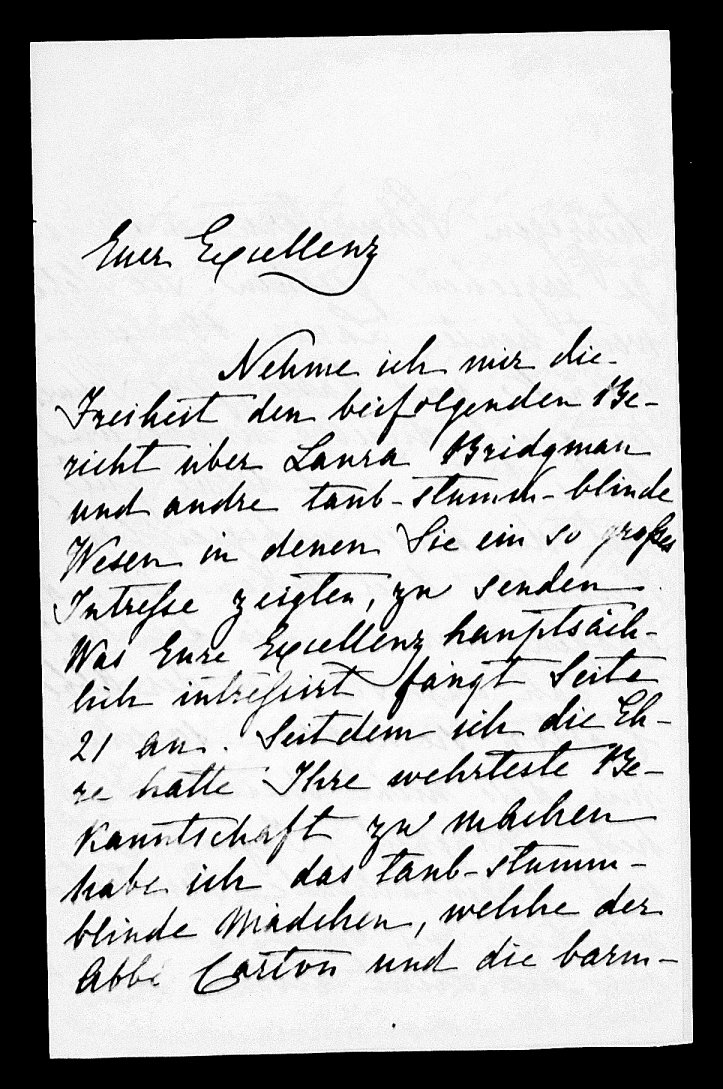 Euer Excellenz
Nehme ich mir die
Freiheit den beifolgenden Be-
richt über Laura Bridgman
und andre taub-stumm-blinde
Wesen in denen Sie ein so großes
Intreſse zeigten, zu senden.
Was Eure Excellenz hauptsäch-
lich intreſsirt fängt Seite
21 an. Seitdem ich die Eh-
re hatte Ihre wehrteste Be-
kanntschaft zu machen
habe ich das taub-stumm-
blinde Mädchen, welche der
Abbé Carton und die barm-